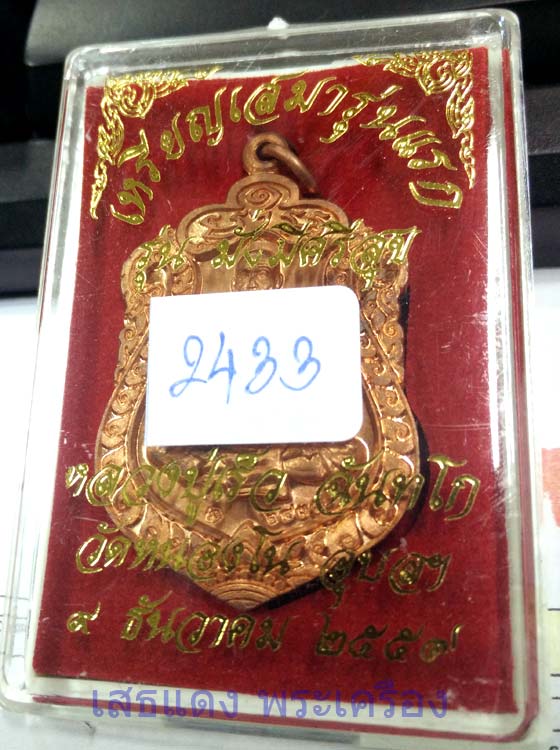 เหรียญเสมารุ่นแรก
รุ่น มั่งมีศรีสุข
2433
หลวงปู่เร็ว ฉันทโก
วัดหนองโน อุบลฯ
๙ ธันวาคม ๒๕๕๗
เสธแดง พระเครื่อง